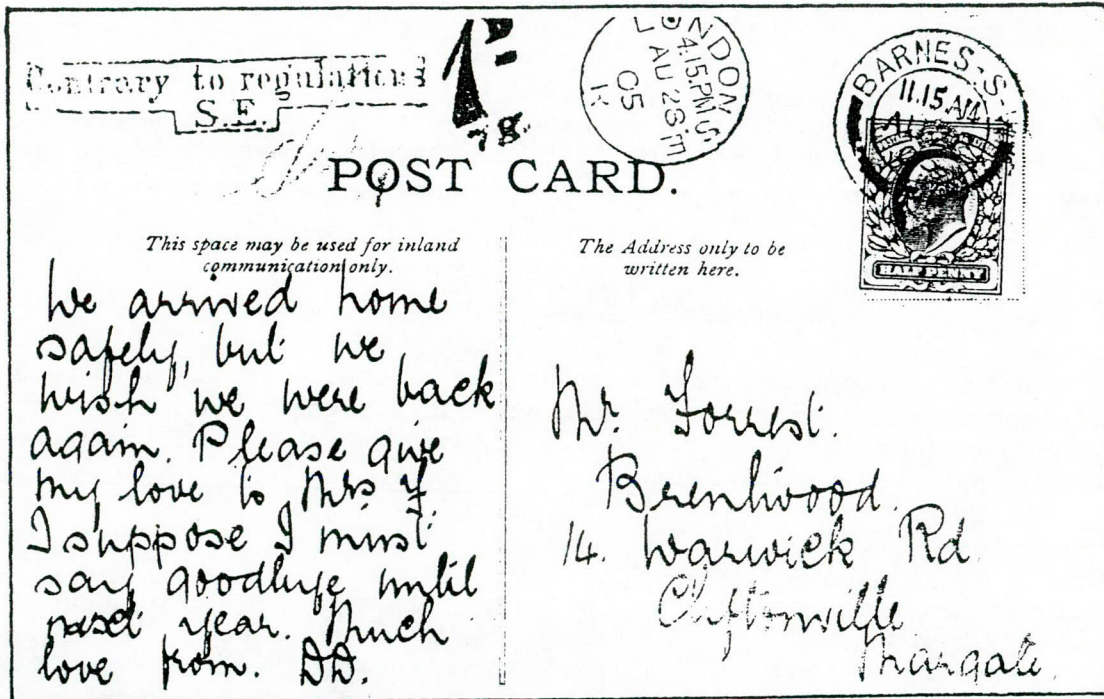 Contrary to regulations
S.E.
LONDON
4.15 PM
AU 28
05
BARNES-S
11.15 AM
AU
POST CARD.
HALF PENNY
This space may be used for inland
communication only.
The Address only to be
written here.
We arrived home
safely, but we
wish we were back
again. Please give
my love to Mrs F.
I suppose I must
say goodbye until
next year. Much
love from. DD.
Mr. Forrest.
Brenhwood.
14. Warwick Rd
Cliftonville
Margate.